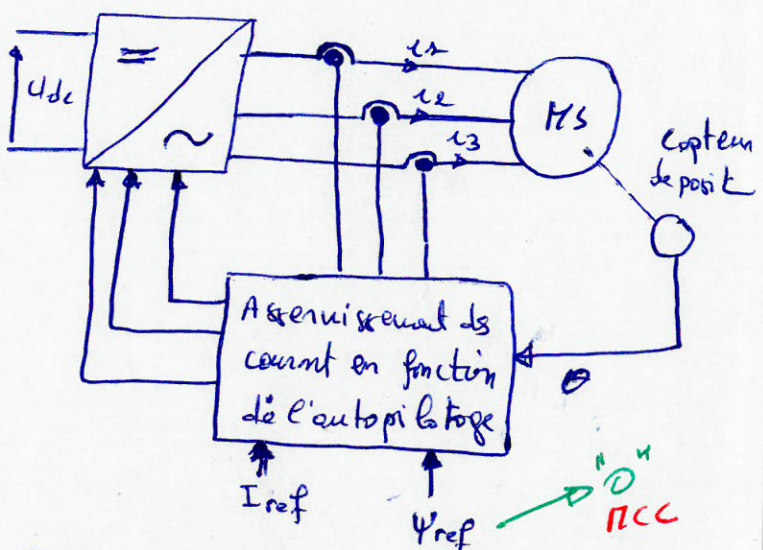 i1
Udc
i2
MS
i3
capteur
de posit
Asservissement ds
courant en fonction
de l'autopilotage
θ
Iref
Ψref
"O"
MCC